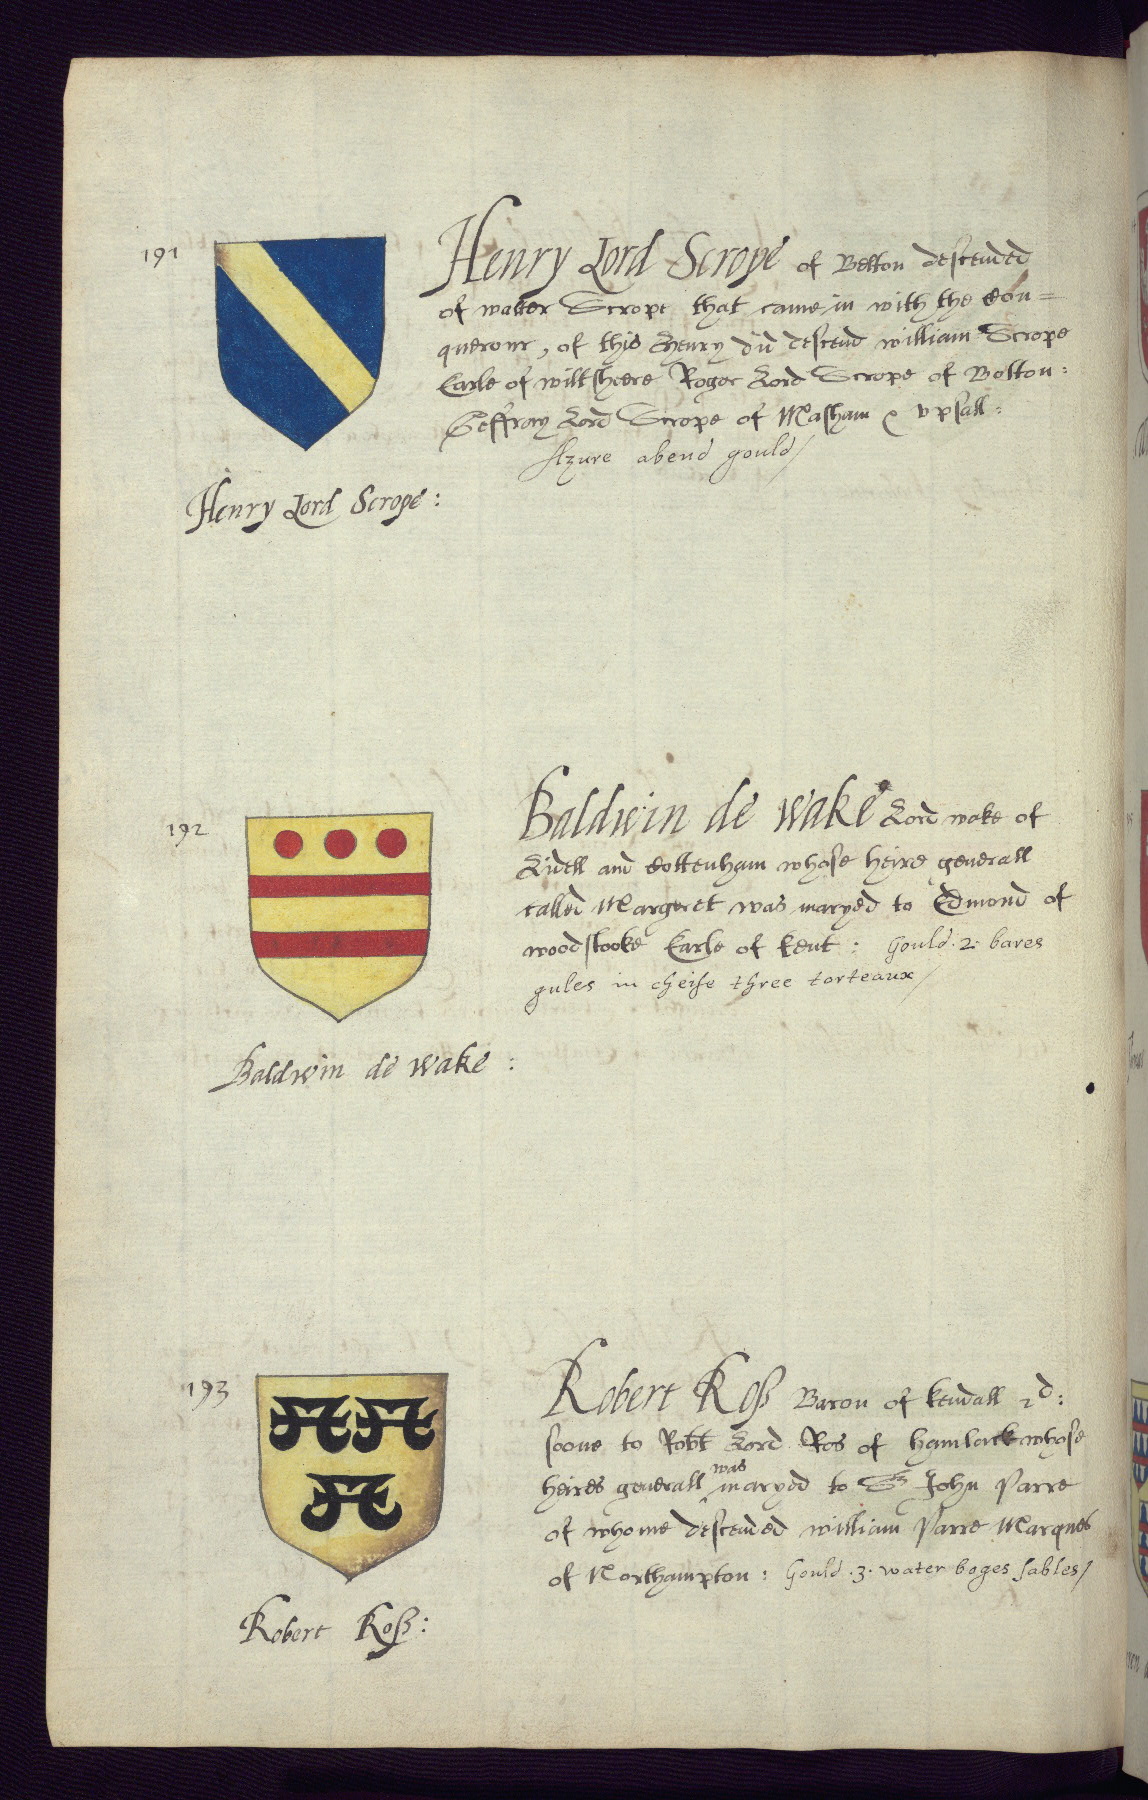 191
Henry Lord Scrope of Bolton descended
of walter Scrope that came in with the Con=
querour, of this Henry did descend william Scrope
Earle of wiltsheere Roger Lord Scrope of Bolton:
Geffray Lord Scrope of Masham & vpsall:
Azure abend gould/
Henry Lord Scrope:
192
Baldwin de wake Lord wake of
Lidell and Cottenham whose heire generall
called Margeret was maryed to Edmond of
woodstooke Earle of kent: Gould .2. bares
gules in cheife three torteaux/
Baldwin de wake:
193
Robert Roß Baron of kendall 2d:
soone to Robt Lord Ros of hamlack whose
heires generall was maryed to Sr John Parre
of whome descended william Parre Marques
of Northampton: Gould .3. water boges sables/
Robert Roß: